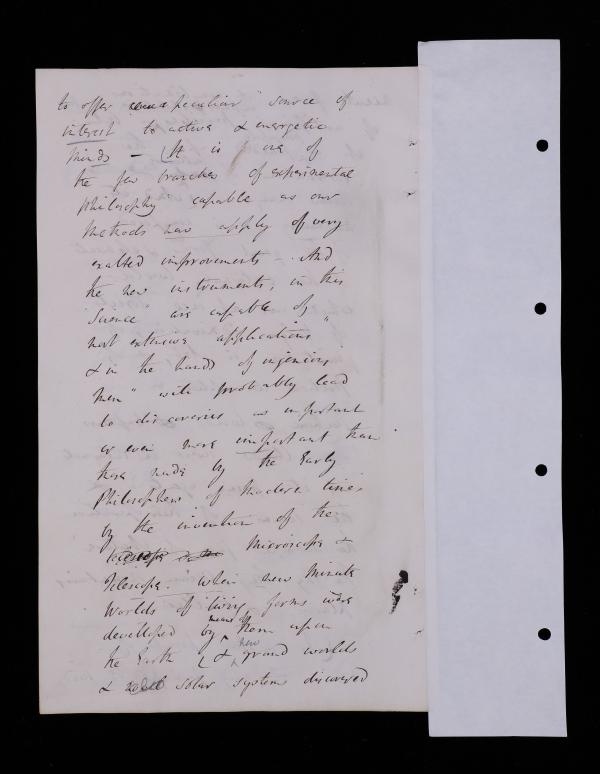 to offer peculiar source of
interest to active & energetic
Minds - It is one of
the few branches of experimental
philosophy capable as our
Methods now apply of very
exalted improvements -. And
the new instruments, in this
Science are capable of
most extensive applications
& in the hands of ingenious
Men will probably lead
to discoveries as important
or even more important than
those made by the Early
Philosophers of Modern times
by the invention of the
Microscope &
Telescope: when new Minute
Worlds of living forms were
developed by means of them upon
the Earth & new grand worlds
& solar systems discovered